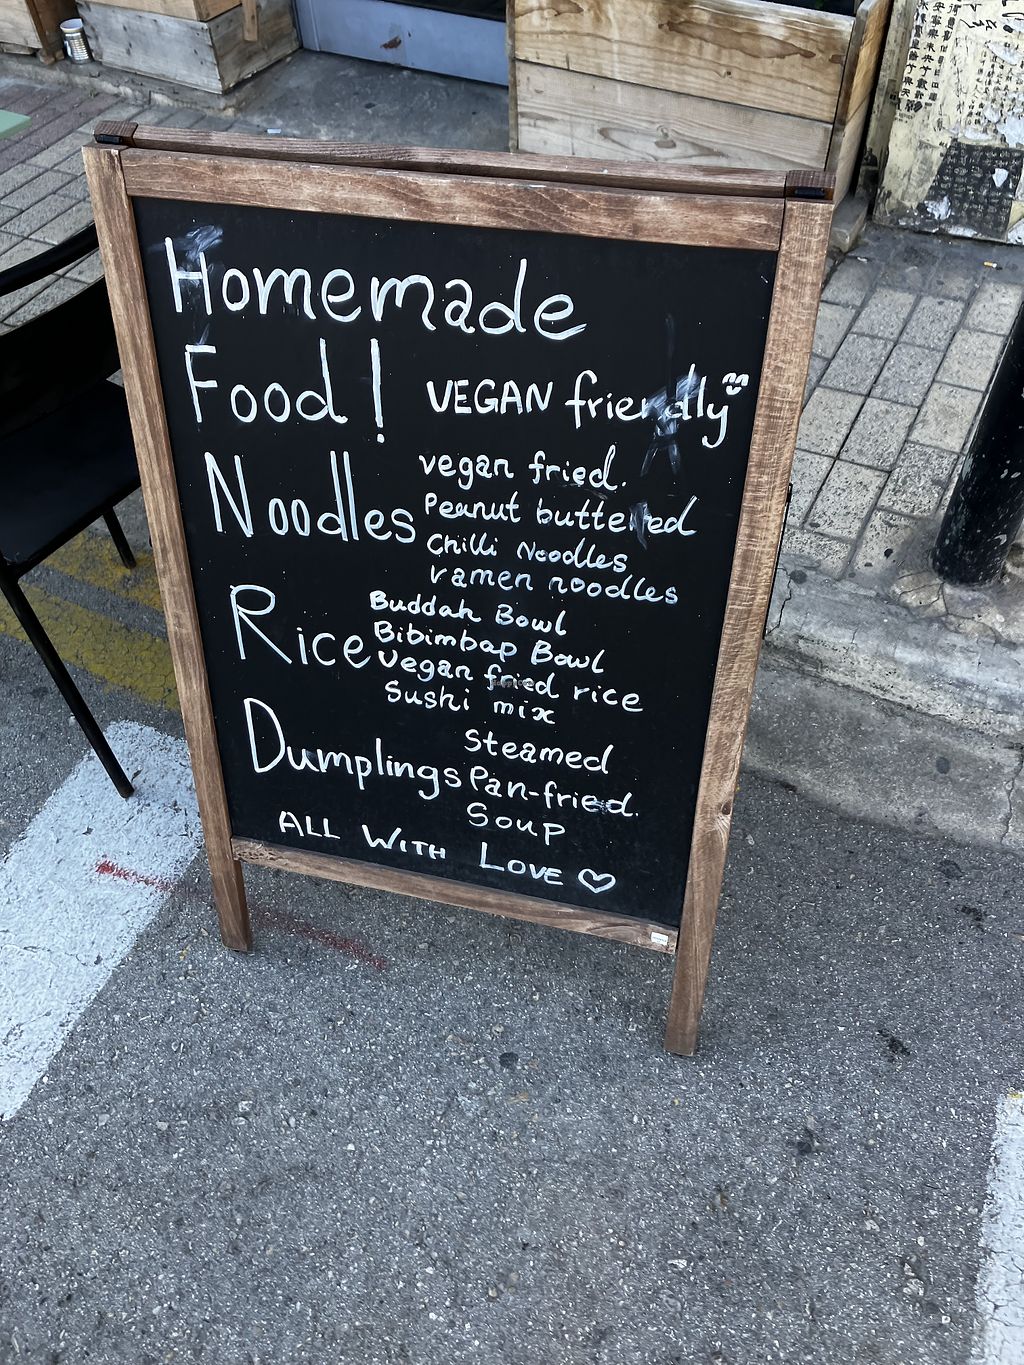 Homemade
Food! VEGAN friendly
Noodles
vegan fried.
Peanut buttered
Chilli Noodles
ramen noodles
Rice
Buddah Bowl
Bibimbap Bowl
vegan fried rice
Sushi mix
Dumplings
Steamed
Pan-fried.
Soup
ALL WITH LOVE ♡